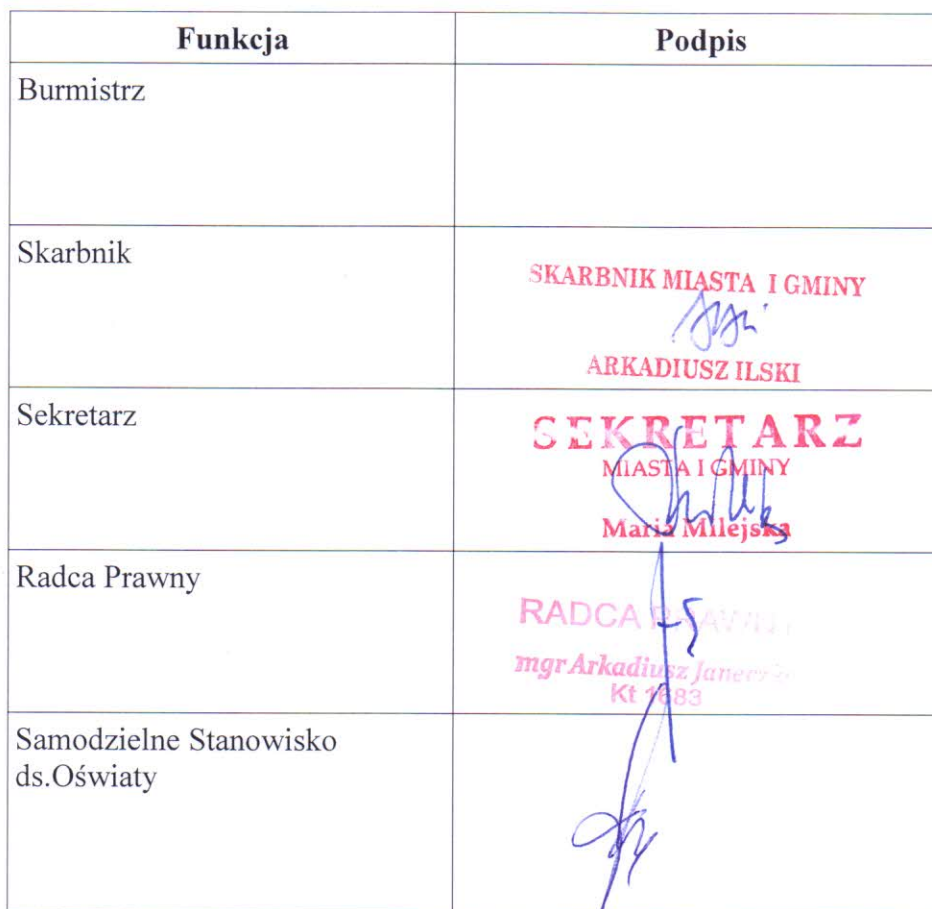 Funkcja Podpis
Burmistrz
Skarbnik
SKARBNIK MIASTA I GMINY
ARKADIUSZ ILSKI
Sekretarz
SEKRETARZ
MIASTA I GMINY
Maria Milejska
Radca Prawny
RADCA PRAWNY
mgr Arkadiusz
Kt 1683
Samodzielne Stanowisko
ds.Oświaty